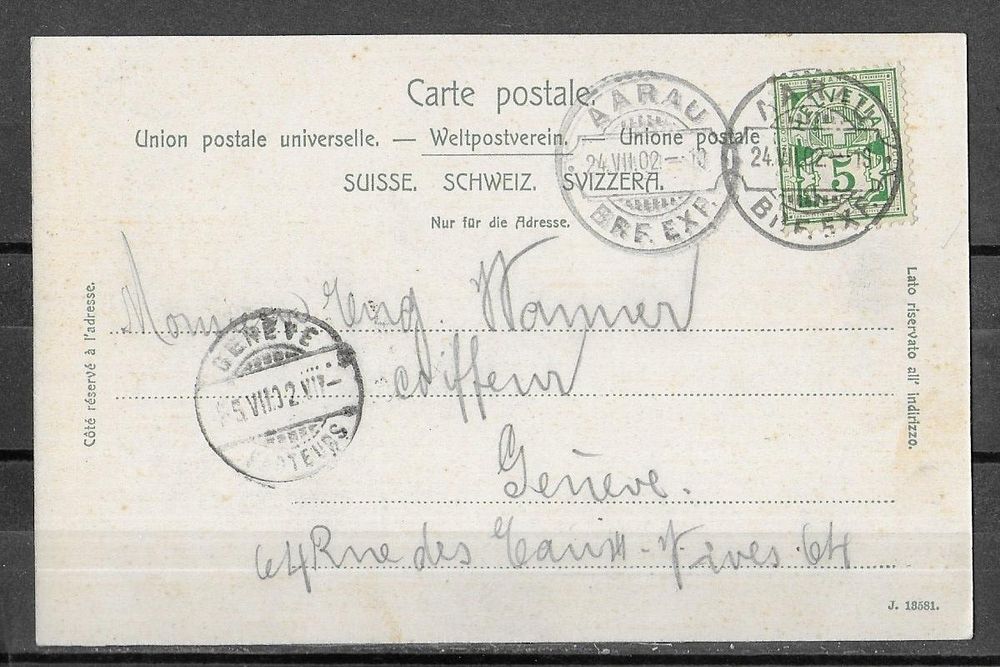 Carte postale.
Union postale universelle. — Weltpostverein. — Unione postale
SUISSE. SCHWEIZ. SVIZZERA.
Nur für die Adresse.
AARAU
24.VII.02.–19
BRF. EXP.
AARAU
24.VII.02.–19
BRF. EXP.
HELVETIA
FRANCO
5
Côté réservé à l'adresse.
Lato riservato all' indirizzo.
Monsieur Wanner
GENÈVE
VII.02.VII–
FACTEURS
Coiffeur
Genève.
64 Rue des Eaux-Vives 64
J. 13581.